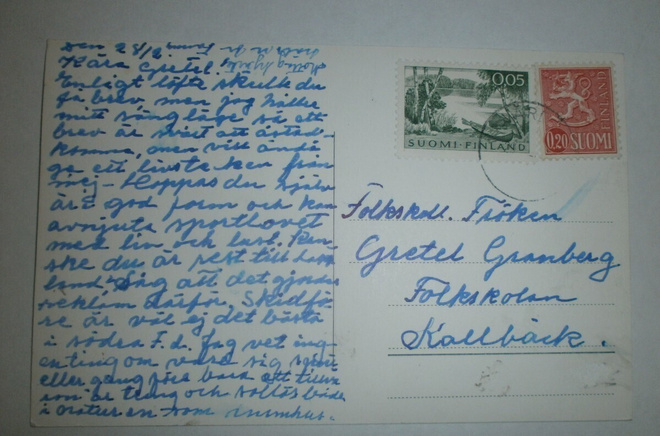 Den 28/2
Kära Gretel.
Enligt löfte skulle du
få brev, men jag håller
mitt sängläge så ett
brev är svårt att åstad-
komma, men vill ändå
ge ett livstecken från
mej. Hoppas du själv
är i god form och kan
avnjuta sportlovet
med liv och lust. Kan-
ske du är rest till
land. Såg att det gjordes
reklam därför. Skidfö-
re är väl ej det bästa
i södra F.d. Jag vet ing-
enting om vare sig
eller bara att
är tung och
i naturen som
0.05
SUOMI·FINLAND
FINLAND
0,20 SUOMI
Folkskoll. Fröken
Gretel Granberg
Folkskolan
Kallbäck.